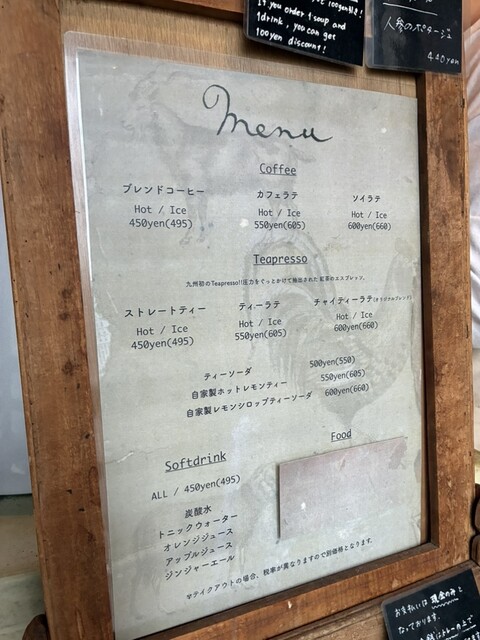 If you order 1 soup and
1drink, you can get
100yen discount!
人参のポタージュ
Menu
Coffee
ブレンドコーヒー
Hot / Ice
450yen(495)
カフェラテ
Hot / Ice
550yen(605)
ソイラテ
Hot / Ice
600yen(660)
Teapresso
九州初のTeapresso!!圧力をぐっとかけて抽出された 紅茶のエスプレッソ。
ストレートティー
Hot / Ice
450yen(495)
ティーラテ
Hot / Ice
550yen(605)
チャイティーラテ(オリジナルブレンド)
Hot / Ice
600yen(660)
ティーソーダ 500yen(550)
自家製ホットレモンティー 550yen(605)
自家製レモンシロップティーソーダ 600yen(660)
Softdrink
ALL / 450yen(495)
炭酸水
トニックウォーター
オレンジジュース
アップルジュース
ジンジャーエール
Food
※テイクアウトの場合、税率が異なりますので別価格となります。
お支払いは現金のみと
なっております。
トレーの上で